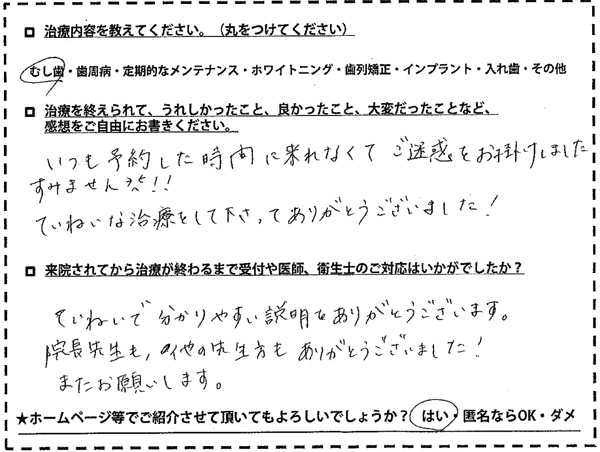 治療内容を教えてください。（丸をつけてください）
むし歯・歯周病・定期的なメンテナンス・ホワイトニング・歯列矯正・インプラント・入れ歯・その他
治療を終えられて、うれしかったこと、良かったこと、大変だったことなど、
感想をご自由にお書きください。
いつも予約した時間に来れなくてご迷惑をお掛けしました
すみません!!
ていねいな治療をして下さってありがとうございました!
来院されてから治療が終わるまで受付や医師、衛生士のご対応はいかがでしたか？
ていねいで分かりやすい説明をありがとうございます。
院長先生も,他の先生方もありがとうございました!
またお願いします。
★ホームページ等でご紹介させて頂いてもよろしいでしょうか？ はい・匿名ならOK・ダメ